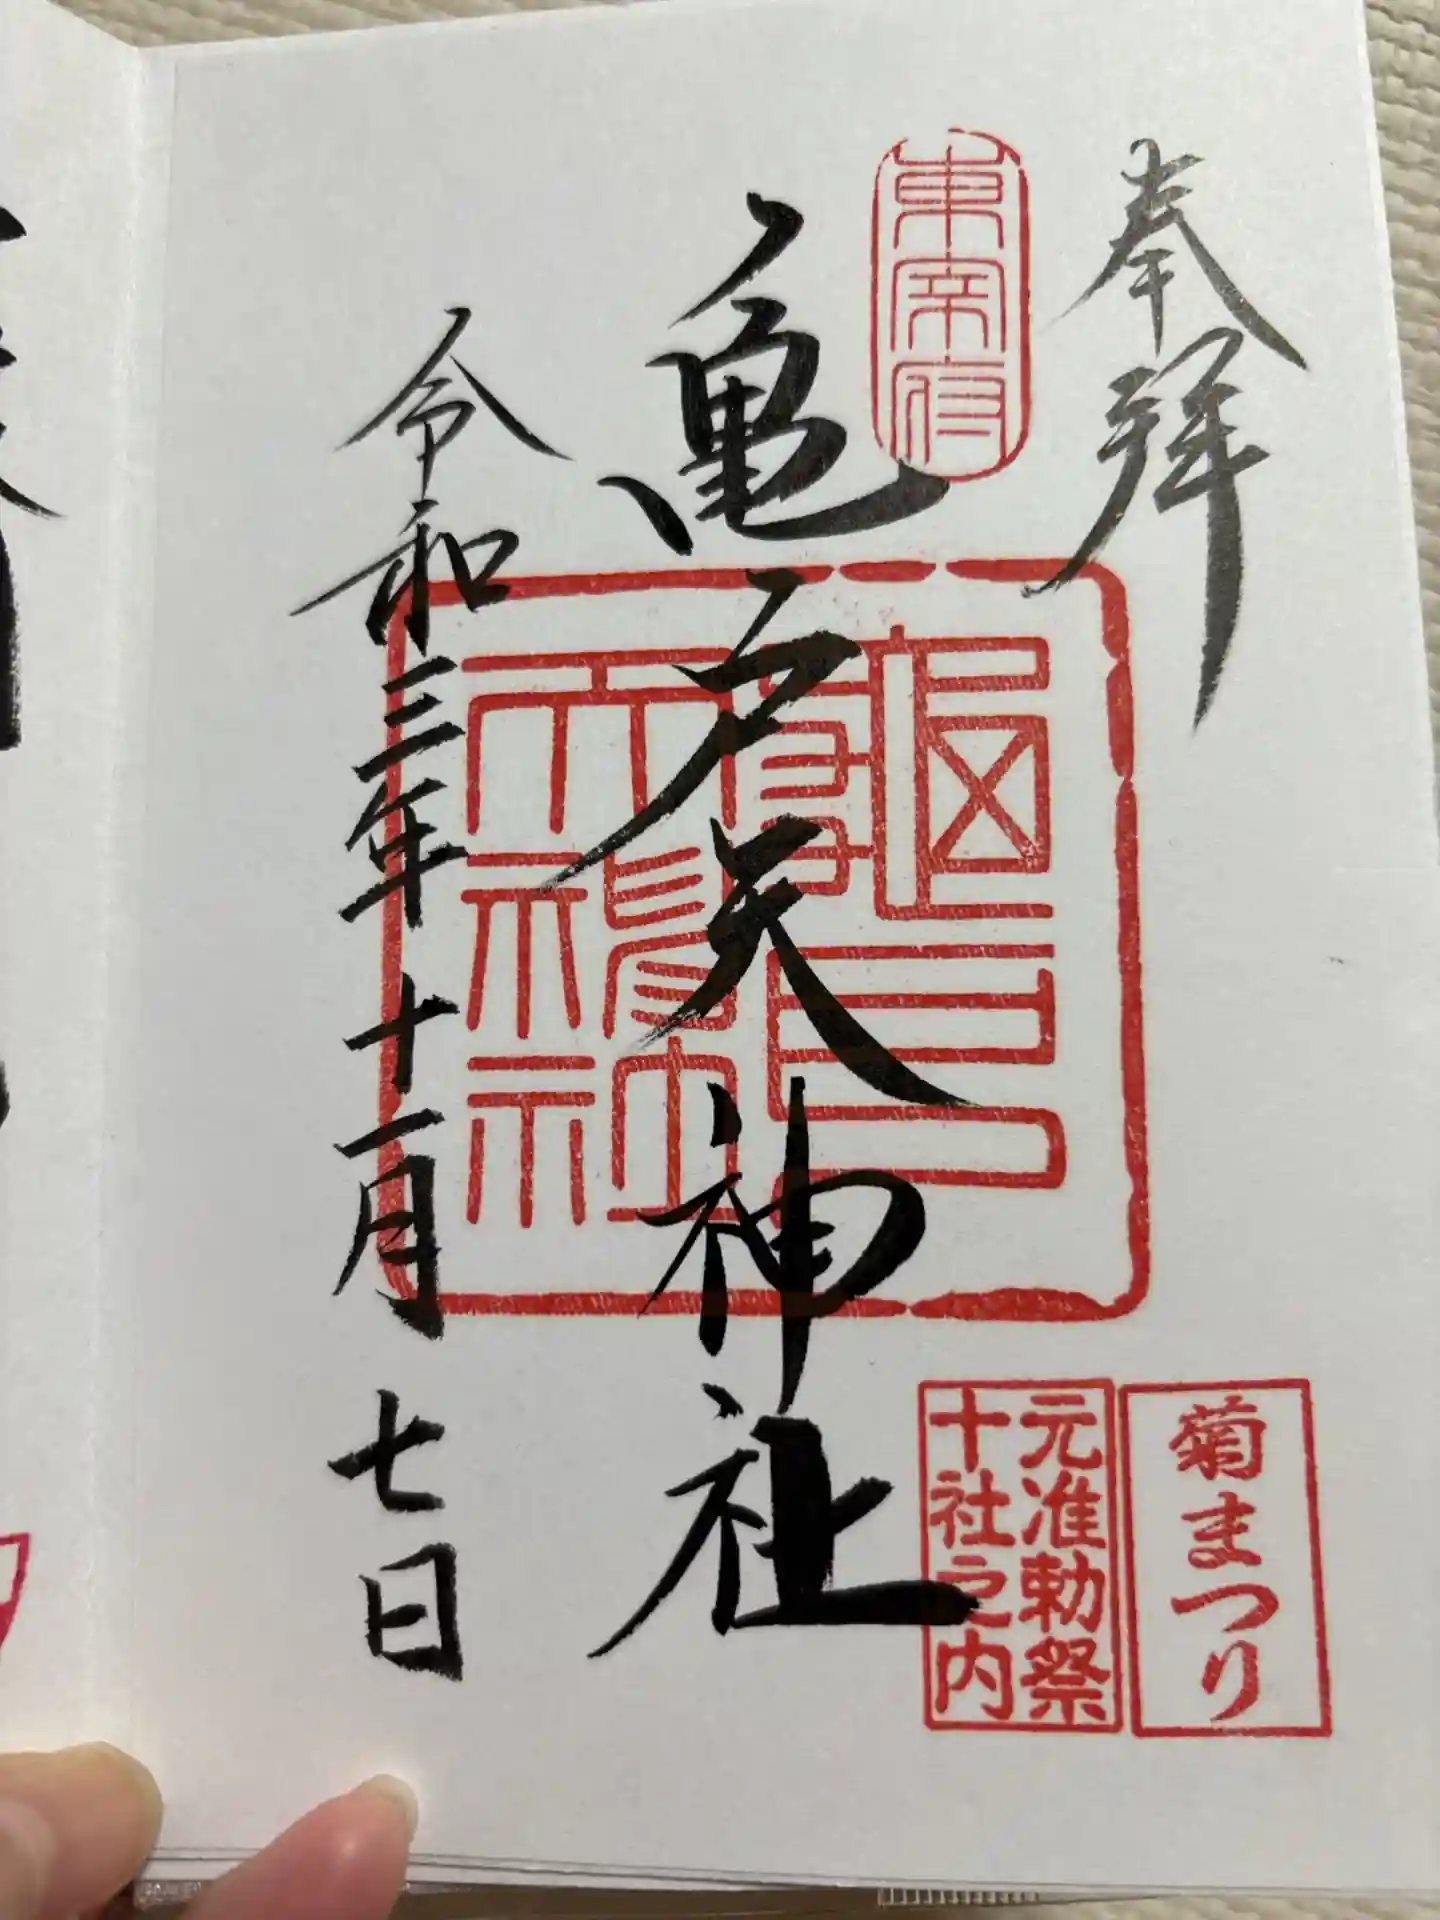 奉拝
東宰府
亀戸天神社
龜戸天神社
令和三年十一月七日
菊まつり
元准勅祭
十社之内